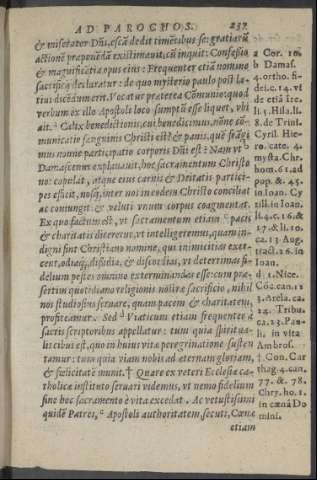 AD PAROCHOS. 237
& miserator Dñs, escã dedit timẽtibus se: gratiarũ
actionẽ præponẽdã existimauit, cũ inquit: Confessio
& magnificẽtia opus eius: Frequenter etiã nomine
sacrificij declaratur: de quo mysterio paulo post la-
tius dicẽdum erit. Vocatur præterea Cõmunio, quod
verbum ex illo Apostoli loco sumptũ esse liquet, vbi
ait. Calix benedictionis, cui benedicimus, nõne cõ-
municatio sanguinis Christi est? & panis, quẽ frãgi
mus nonne participatio corporis Dñi est? Nam vt
Damascenus explanauit, hoc sacramentum Christo
nos copulat, atque eius carnis & Deitatis partici-
pes efficit, nosq́; inter nos in eodem Christo conciliat
ac coniungit: & veluti vnum corpus coagmentat.
Ex quo factum est, vt sacramentum etiam pacis
& charitatis diceretur, vt intelligeremus, quam in-
digni sint Christiano nomine, qui inimicitias exer-
cent, odiaq́;, dissidia, & discordias, vt deterrimas fi-
delium pestes omnino exterminandas esse: cum præ-
sertim quotidiano religionis nostræ sacrificio, nihil
nos studiosius seruare, quam pacem & charitatem,
profiteamur. Sed d Viaticum etiam frequenter à
sacris scriptoribus appellatur: tum quia spiritua-
lis cibus est, quo in huius vitæ peregrinatione susten
tamur: tum quia viam nobis ad æternam gloriam,
& fœlicitatẽ munit. † Quare ex veteri Ecclesiæ ca-
tholicæ instituto seruari videmus, vt nemo fidelium
sine hoc sacramento è vita excedat. Ac vetustissimi
quidẽ Patres, Apostoli authoritatem, secuti, Cœnæ
etiam
a Cor. 10.
b Damas.
4. ortho. fi-
dei. c. 14. vt
de etiã Ire.
li. 5. Hila. li.
8. de Trini.
Cyril. Hie-
ro. cate. 4.
mysta. Chr.
hom. 61. ad
pop. & 45.
in Ioan. Cy
rill. in Ioan.
li. 4. c. 16. &
17. & li. 10.
ca. 13 Aug.
tract. 26. in
Ioan.
d 1. Nice.
Cõc. can. 12
3. Arela. ca.
12. Tribu.
ca. 23. Pau-
li. in vita
Ambros.
†. Con. Car
thag. 4. can.
77. & 78.
Chry. ho. 1.
in cœnã Do
mini.